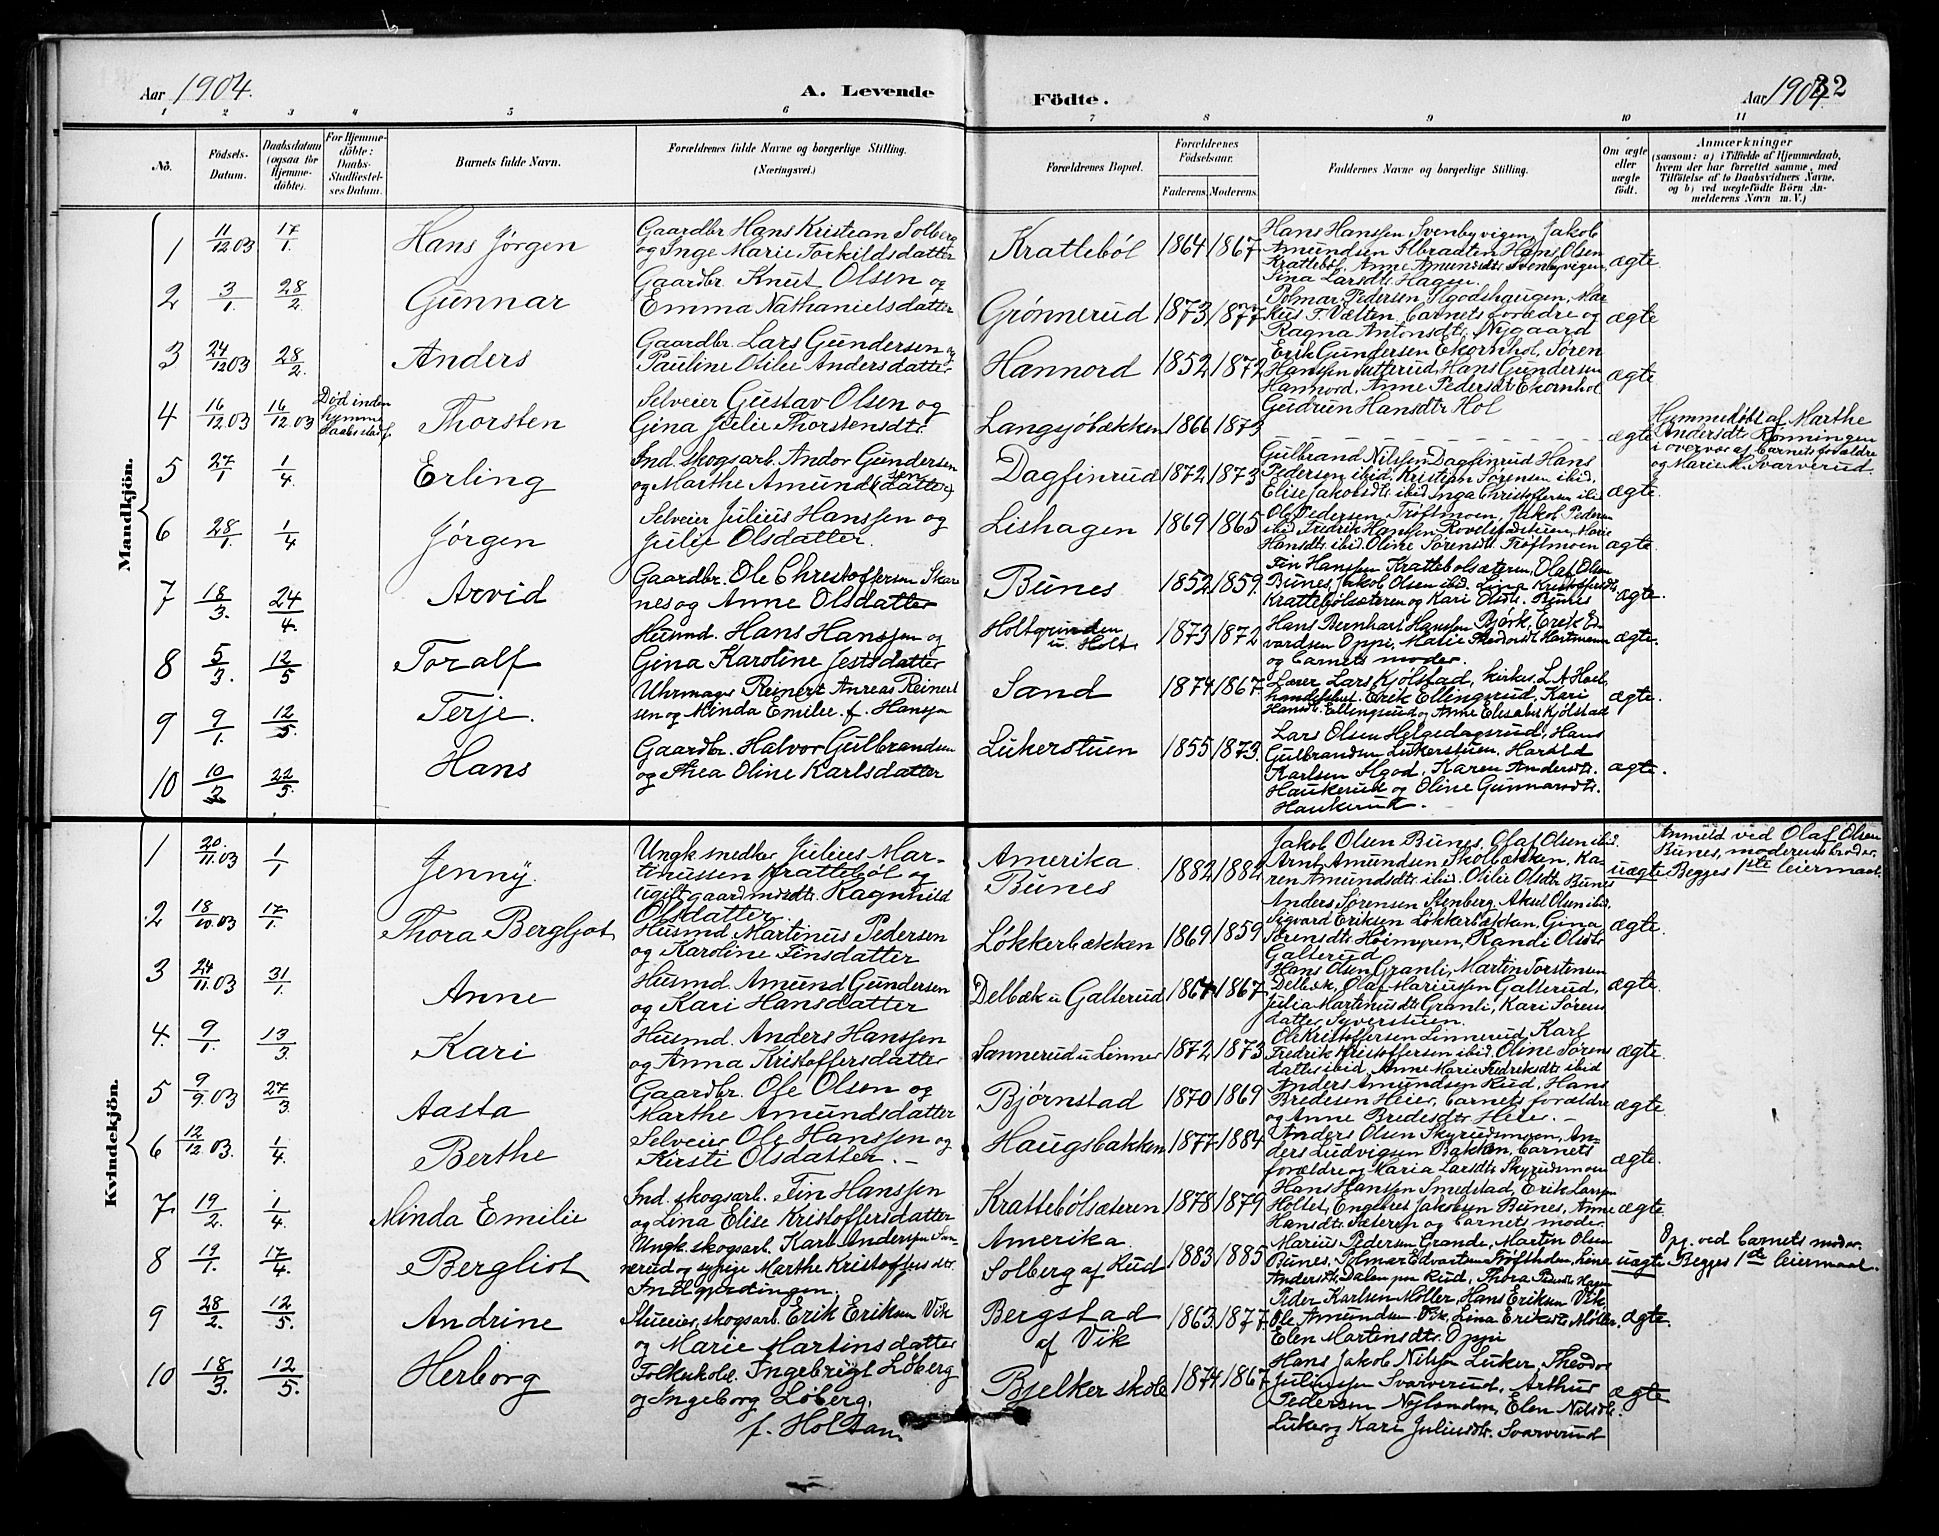 Aar 1904.
A. Levende
Födte.
Aar 1904.
32
1 2 3 4 5 6 7 8 9 10 11
No.
Födsels-
Datum.
Daabsdatum
(ogsaa for
Hjemme-
döbte).
For Hjemme-
döbte:
Daabs-
Stadfæstel-
ses Datum.
Barnets fulde Navn.
Forældrenes fulde Navne og borgerlige Stilling.
(Næringsvei.)
Forældrenes Bopæl.
Forældrenes
Födselsaar.
Faderens. Moderens.
Faddernes Navne og borgerlige Stilling.
Om ægte
eller
uægte
födt.
Anmærkninger
(saasom: a) i Tilfælde af Hjemmedaab,
hvem der har forrettet samme, med
Tilföielse af to Daabsvidners Navne,
og b) ved uægtefödte Börn An-
melderens Navn m. V.)
Mandkjön.
1 11/12 03 17/1. Hans Jörgen
Gaardbr Hans Kristian Solberg
og Inge Marie Torkildsdatter
Kratteböl 1864 1867
Hans Hanssen Svenbyvigen, Jakob
Amundsen Ilbraaten, Hans Olsen
Kratteböl, Anne Amundsdtr Svenbyvigen,
Tina Larsdtr Hagen.
ægte
2 3/1. 28/2 Gunnar
Gaardbr. Knut Olsen og
Emma Nathanielsdatter
Grønnerud 1873 1877
Polmar Pedersen Algodshaugen, Mar-
kus T. Vælten, barnets forældre og
Ragna Antonsdtr Nygaard
ægte
3 24/12 03 28/2. Anders
Gaardbr. Lars Gundersen og
Pauline Otilie Andersdatter
Hannord 1852 1872
Erik Gundersen Ekornhol, Søren
Hanssen Sætterud, Hans Gundersen
Hannord, Anne Pedersdtr Ekornhol
Gudrun Hansdtr Hol
ægte
4 16/12 03 16/12 03 Død inden
hjemme
daabs stadf.
Thorsten
Selveier Gustav Olsen og
Gina Julie Thorstensdtr.
Langsjøbækken 1866 1873
ægte
Hjemmedøbt af Marthe
Andersdtr Rønningen
i overvær af barnets forældre
og Marie K. Svarverud.
5 27/1 1/4 Erling
Ind. skogsarb. Andor Gundersen
og Marthe Amund(sen)datter
Dagfinrud 1872 1873
Gulbrand Nilsen Dagfinrud, Hans
Pedersen ibid, Kristian Sørensen ibid,
Elise Jakobsdtr ibid Inga Christoffersen ibid
ægte.
6 28/1. 1/4 Jørgen
Selveier Julius Hanssen og
Julie Olsdatter.
Lishagen 1869 1865
Ole Pedersen, Trøftmoen, Jakob Pedersen
ibid. Fredrik Hansen, Marie
Hansdtr ibid. Oline Sørensdtr. Trøftmoen
ægte.
7 18/3. 24/4. Arvid
Gaardbr. Ole Christoffersen Skar-
nes og Anne Olsdatter
Bunes 1852 1859.
Fin Hanssen Krattebølsæteren, Olaf Olsen
Bunes, Jakob Olsen ibid. Lina Kristoffersdtr
Krattebølsæteren og Kari Olsdtr. Bunes
ægte.
8 5/3. 12/5 Toralf
Husmd. Hans Hanssen og
Gina Karoline Jensdatter
Holtgrinden
u. Holt 1873 1872
Hans Bernhart Hanssen Bjørk, Erik Ed-
vardsen Oppi, Marie Theodorsdtr Hartmoen
og barnets moder.
ægte.
9 9/1. 12/5. Terje.
Uhrmager Reinert Anreas Reinert-
sen og Minda Emilie f. Hanssen
Sand 1874 1867
Lærer Lars Kjølstad, kirkes. L. A. Hoel,
handelsbet. Erik Ellingsrud, Kari
Hansdtr. Ellingsrud og Anne Elisabet Kjølstad
ægte
10 10/3 22/5. Hans
Gaardbr. Halvor Gulbrandsen
og Thea Oline Karlsdatter
Lukerstuen 1855 1873.
Lars Olsen Helgedagsrud, Hans
Gulbrandsen Lukerstuen, Harald
Karlsen Algod, Karen Andersdtr.
Haukerud og Oline Gunnarsdtr.
Haukerud.
ægte.
Kvindekjön.
1 20/11.03 1/1 Jenny.
Ungk. snedker Julius Mar-
tinussen Kratteböl og
ugift gaardmdsdtr. Ragnhild
Olsdatter.
Amerika
Bunes 1882 1882
Jakob Olsen Bunes, Olaf Olsen ibid.
Arnt Amundsen Skolbækken, Ka-
ren Amundsdtr. ibid. Otilie Olsdtr Bunes
uægte
Anmeld ved Olaf Olsen
Bunes, moderens broder.
Begges 1ste leiermaal.
2 18/10.03 17/1. Thora Bergljot
Husmd Martinus Pedersen
og Karoline Finsdatter
Løkkerbækken 1869 1859
Anders Sørensen Stenberg, Aksel Olsen ibid,
Sigvard Eriksen Løkkerbækken, Gina
Sørensdtr Høimyren, Randi Olsdtr
Galterud
ægte.
3 24/11.03 31/1. Anne
Husmd. Amund Gundersen
og Kari Hansdatter
Delbæk u Galterud 1864 1867
Hans Olsen Granli, Martin Torstensen
Delbæk, Olaf Mariussen Galterud,
Julia Martinusdtr Granli, Kari Sørens
datter Syverstuen.
ægte.
4. 9/1. 13/3. Kari
Husmd. Anders Hanssen
og Anna Kristoffersdatter
Sannerud u Linner 1872 1873
Ole Kristoffersen Linnerud, Karl
Fredrik Kristoffersen ibid. Oline Sørens
datter ibid, Anne Marie Fredriksdtr ibid
ægte.
5 9/9.03 27/3. Aasta
Gaardbr. Ole Olsen og
Marthe Amundsdatter
Bjørnstad 1870 1869
Anders Amundsen Rud, Hans
Bredesen Heier, barnets forældre
og Anne Bredesdtr Heier.
ægte.
6 12/12 03. 1/4. Berthe
Selveier Ole Hanssen og
Kirsti Olsdatter.
Haugsbakken 1877 1884
Anders Olsen Skyrudsmoen, An-
ders Ludvigsen Bakken, barnets
forældre og Maria Larsdtr Skyrudsmoen
ægte.
7 19/2. 1/4. Minda Emilie
Ind. skogsarb. Fin Hanssen
og Lina Elise Kristoffersdatter
Krattebølsæteren 1878 1879
Hans Hansen Smedstad, Erik Larsen
Holtet, Engebret Jakobsen Bunes, Anne
Hansdtr. Sæteren og barnets moder
ægte.
8 19/1. 17/4. Bergliot
Ungk. skogsarb. Karl Andersen San-
nerud og sypige Marthe Kristoffersdtr.
Amerika.
Solberg af Rud 1883 1885
Marius Pedersen Grande, Martin Olsen
Bunes, Polmar Edvartsen Trøftheden, Line
Andersdtr. Dalen pr. Rud, Thora Pedersdtr Hagen
uægte
Opg. ved barnets moder.
Begges 1ste leiermaal.
9 28/2. 12/5. Andrine
skogsarb. Erik Eriksen Vik
og Marie Martinsdatter
Bergstad
af Vik 1863 1877
Peder Karlsen Møller, Hans Eriksen Vik
Ole Amundsen Vik, Lina Eriksdtr Møller
Elen Martinsdtr. Oppi
ægte.
10 18/3. 12/5. Herborg
Folkeskolel. Ingebrigt Løberg
og Ingeborg Løberg,
f. Holtan.
Bjelker skole 1874 1867
Hans Jakob Nilssen Luker, Theodor
Julinssen Svarverud, Arthur
Pedersen Nylænden, Elen Nilsdtr.
Luker og Kari Juliusdtr. Svarverud
ægte